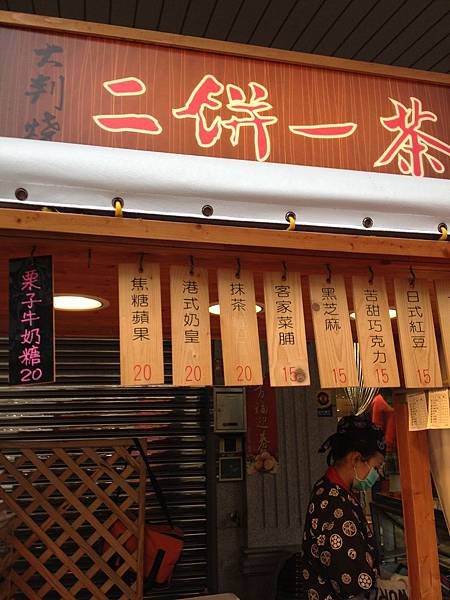 大判燒
二餅一茶
栗子牛奶糖
20
焦糖蘋果
20
港式奶皇
20
抹茶
20
客家菜脯
15
黑芝麻
15
苦甜巧克力
15
日式紅豆
15